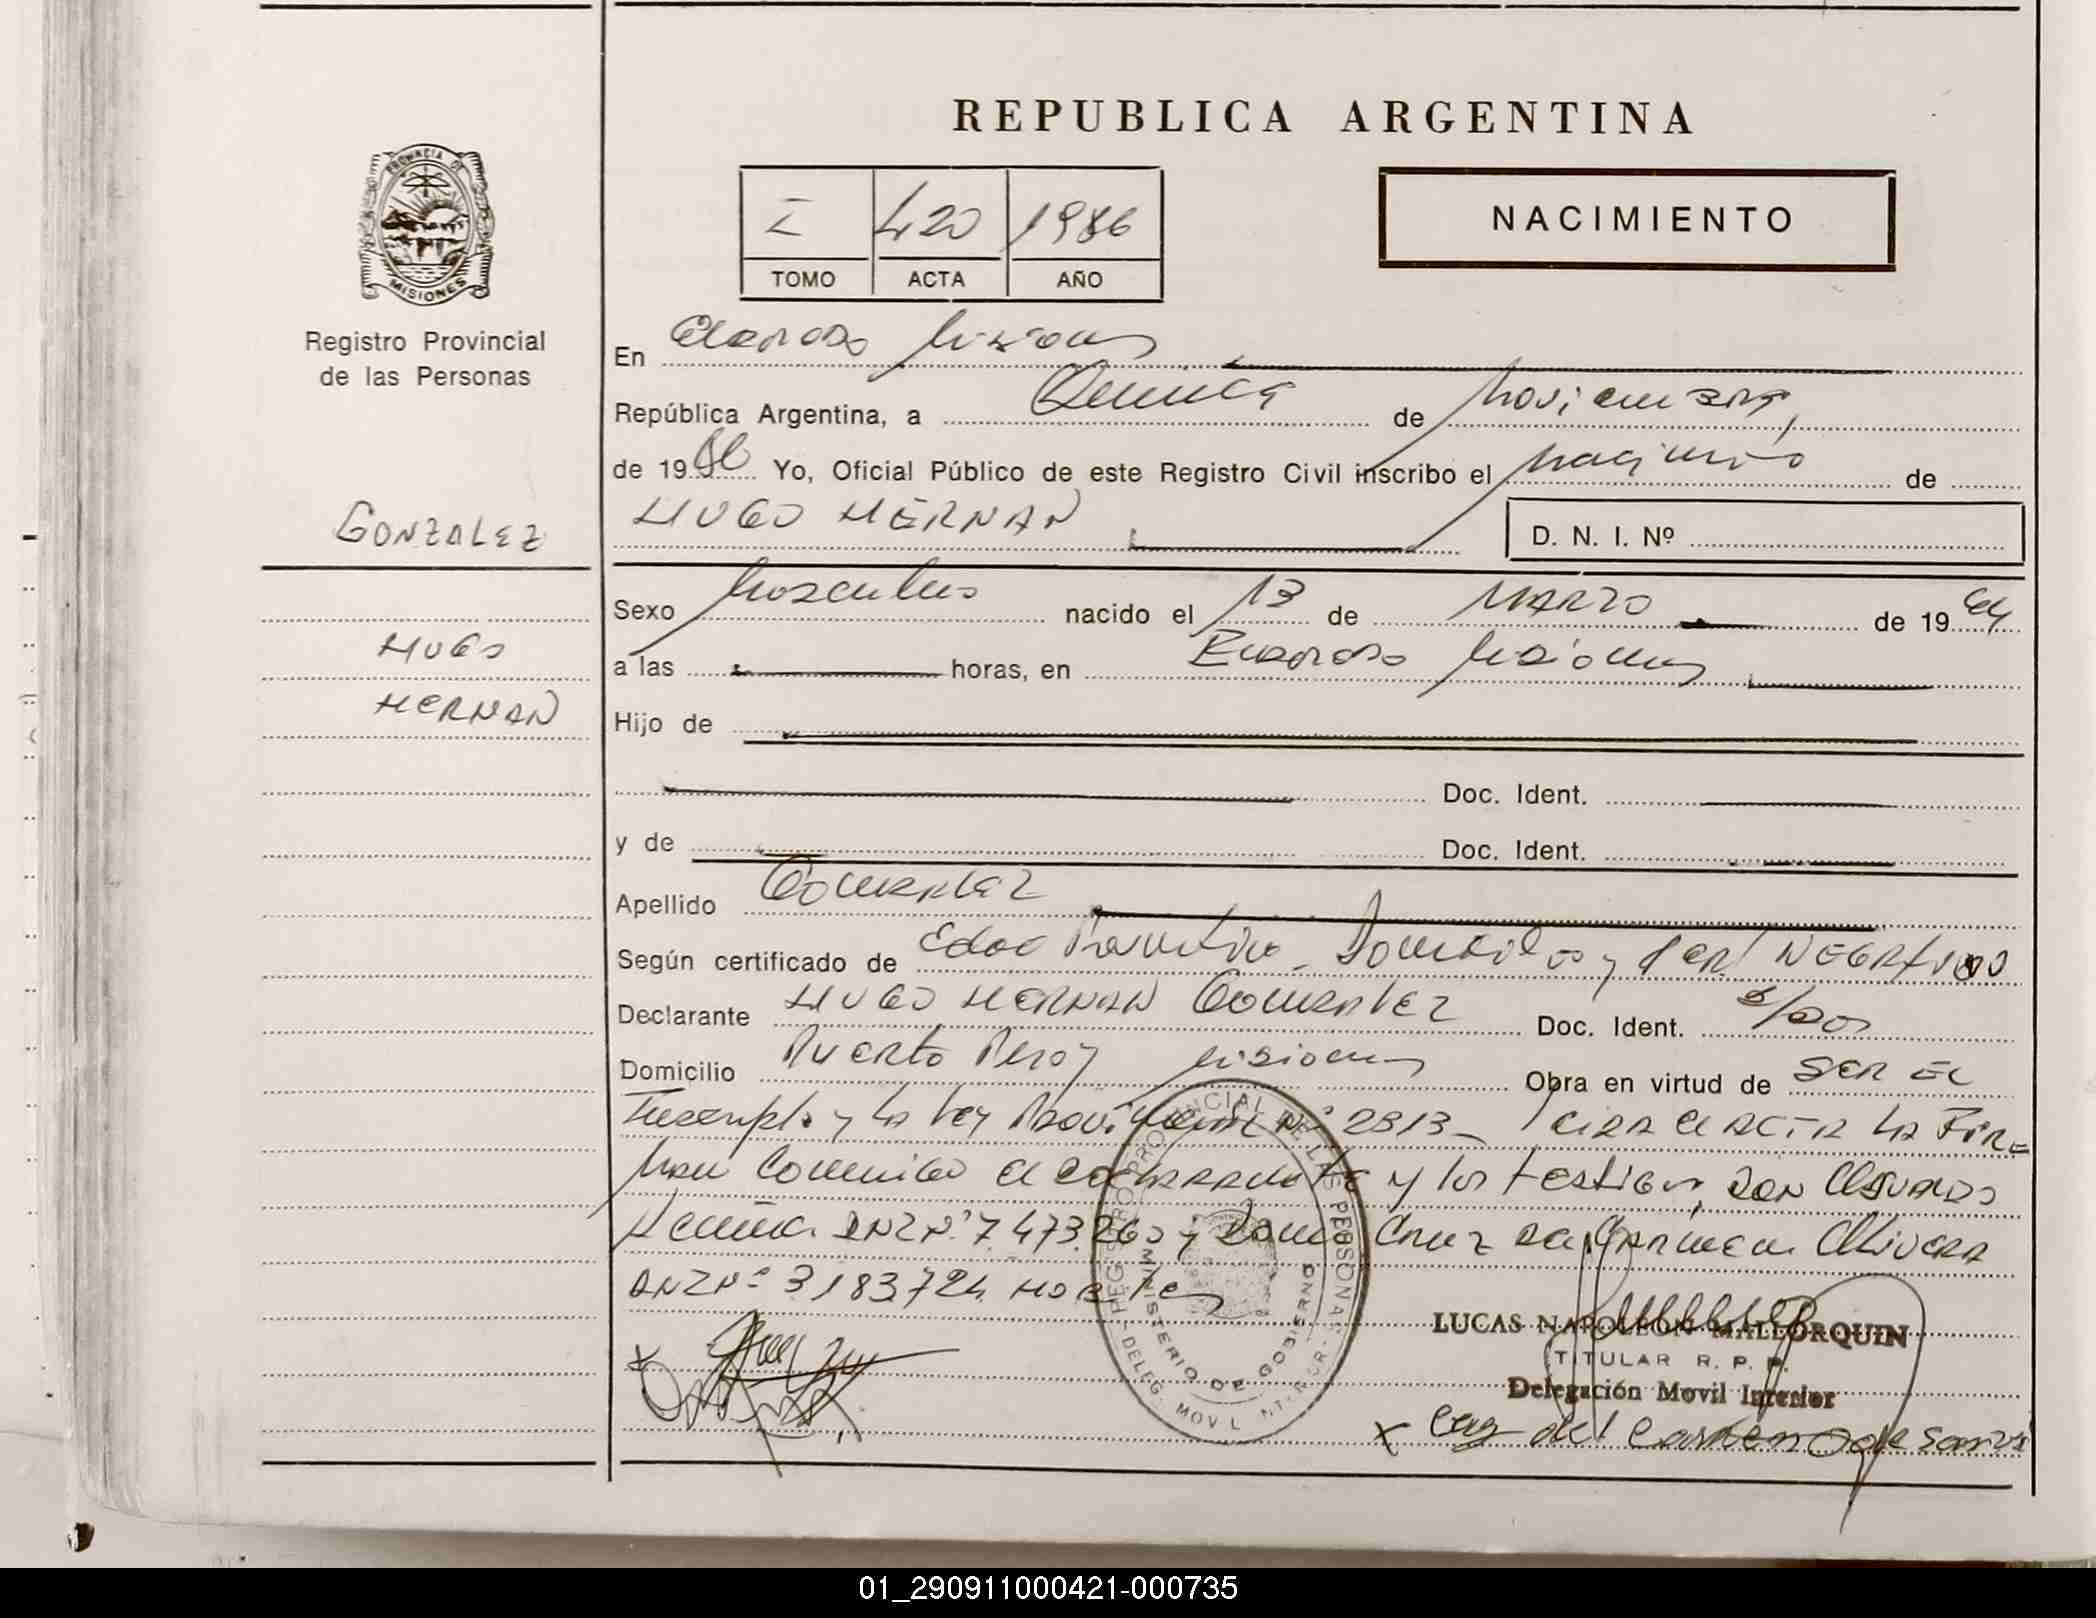 REPUBLICA ARGENTINA
PROVINCIA DE
MISIONES
Registro Provincial
de las Personas
I 420 1986
TOMO ACTA AÑO
NACIMIENTO
En Eldorado Misiones
República Argentina, a Quince de Noviembre,
de 1986 Yo, Oficial Público de este Registro Civil inscribo el nacimiento de
HUGO HERNAN
D. N. I. Nº
GONZALEZ
HUGO
HERNAN
Sexo Masculino nacido el 13 de MARZO de 1964
a las horas, en Eldorado Misiones
Hijo de
Doc. Ident.
y de Doc. Ident.
Apellido GONZALEZ
Según certificado de Edad Domicilio y NEGATIVO
Declarante HUGO HERNAN GONZALEZ Doc. Ident.
Domicilio Puerto Misiones Obra en virtud de SER EL
Inscripto y la Ley Provincial Nº 2813 - el ACTA LA FIR=
man Conmigo el y los testigos, DON
DNI Nº 7.473.260 y Doña Cruz del Carmen
DNI Nº 3183724
REGISTRO PROVINCIAL DE LAS PERSONAS
MINISTERIO DE GOBIERNO
DELEG. MOVIL INTERIOR
LUCAS NAPOLEON MALLORQUIN
TITULAR R. P. P.
Delegación Movil Interior
x del Carmen
01_290911000421-000735